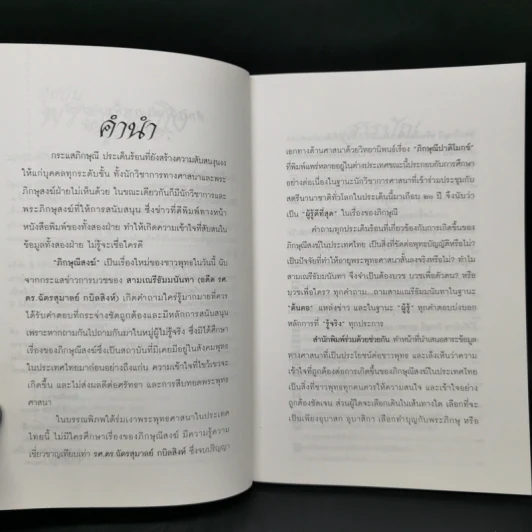 คำนำ
กระแสภิกษุณี ประเด็นร้อนที่ยังสร้างความสับสนงุนงง
ให้แก่บุคคลทุกระดับชั้น ทั้งนักวิชาการทางศาสนาและพระ
ภิกษุสงฆ์ฝ่ายไม่เห็นด้วย ในขณะเดียวกันก็มีนักวิชาการและ
พระภิกษุสงฆ์ที่ให้การสนับสนุน ซึ่งข่าวที่ตีพิมพ์ทางหน้า
หนังสือพิมพ์ของทั้งสองฝ่าย ทำให้เกิดความเข้าใจที่สับสนใน
ข้อมูลทั้งสองฝ่าย ไม่รู้จะเชื่อใครดี
"ภิกษุณีสงฆ์" เป็นเรื่องใหม่ของชาวพุทธในวันนี้ นับ
จากกระแสข่าวการบวชของ สามเณรีธัมมนันทา (อดีต รศ.
ดร.ฉัตรสุมาลย์ กบิลสิงห์) เกิดคำถามใคร่รู้มากมายที่ควร
ได้รับคำตอบที่กระจ่างชัดถูกต้องและมีหลักการสนับสนุน
เพราะหากถามไปถามกันมาในหมู่ผู้ไม่รู้จริง ซึ่งมิได้ศึกษา
เรื่องของภิกษุณีสงฆ์ซึ่งเป็นสถาบันที่มิเคยมีอยู่ในสังคมพุทธ
ในประเทศไทยมาก่อนอย่างถึงแก่น ความเข้าใจที่ไขว้เขวจะ
เกิดขึ้น และไม่ส่งผลดีต่อศรัทธา และการสืบทอดพระพุทธ
ศาสนา
ในบรรณพิภพใต้ร่มเงาพระพุทธศาสนาในประเทศ
ไทยนี้ ไม่มีใครศึกษาเรื่องของภิกษุณีสงฆ์ มีความรู้ความ
เชี่ยวชาญเทียบเท่า รศ.ดร.ฉัตรสุมาลย์ กบิลสิงห์ ซึ่งจบปริญญา
เอกทางด้านศาสนาด้วยวิทยานิพนธ์เรื่อง "ภิกษุณีปาติโมกข์"
ที่พิมพ์แพร่หลายอยู่ในต่างประเทศขณะนี้ประกอบกับการศึกษา
อย่างต่อเนื่องในฐานะนักวิชาการศาสนาที่เข้าร่วมประชุมกับ
สตรีนานาชาติทั่วโลกในประเด็นนี้มาเกือบ ๒๐ ปี จึงนับว่า
เป็น "ผู้รู้ดีที่สุด" ในเรื่องของภิกษุณี
คำถามทุกประเด็นเรื่องที่เกี่ยวข้องกับการเกิดขึ้นของ
ภิกษุณีสงฆ์ในประเทศไทย เป็นสิ่งที่ขัดต่อพุทธบัญญัติหรือไม่?
เป็นปัจจัยที่ทำให้อายุพระพุทธศาสนาสั้นลงจริงหรือไม่? ทำไม
สามเณรีธัมมนันทา จึงจำเป็นต้องบวช บวชเพื่อตัวตน? หรือ
บวชเพื่อใคร? ทุกคำถาม...ถามตามสามเณรีธัมมนันทาในฐานะ
"ต้นตอ" แหล่งข่าว และในฐานะ "ผู้รู้" ทุกคำตอบบ่งบอก
หลักการที่ "รู้จริง" ทุกประการ
สำนักพิมพ์ร่วมด้วยช่วยกัน ทำหน้าที่นำเสนอสาระข้อมูล
ทางศาสนาที่เป็นประโยชน์ต่อชาวพุทธ และเล็งเห็นว่าความ
เข้าใจที่ถูกต้องต่อการเกิดขึ้นของภิกษุณีสงฆ์ในประเทศไทย
เป็นสิ่งที่ชาวพุทธทุกคนควรให้ความสนใจ และเข้าใจอย่าง
ถูกต้องชัดเจน ส่วนผู้ใดจะเลือกเดินในเส้นทางใด เลือกที่จะ
เป็นเพียงอุบาสก อุบาสิกา เลือกทำบุญกับพระภิกษุ หรือ